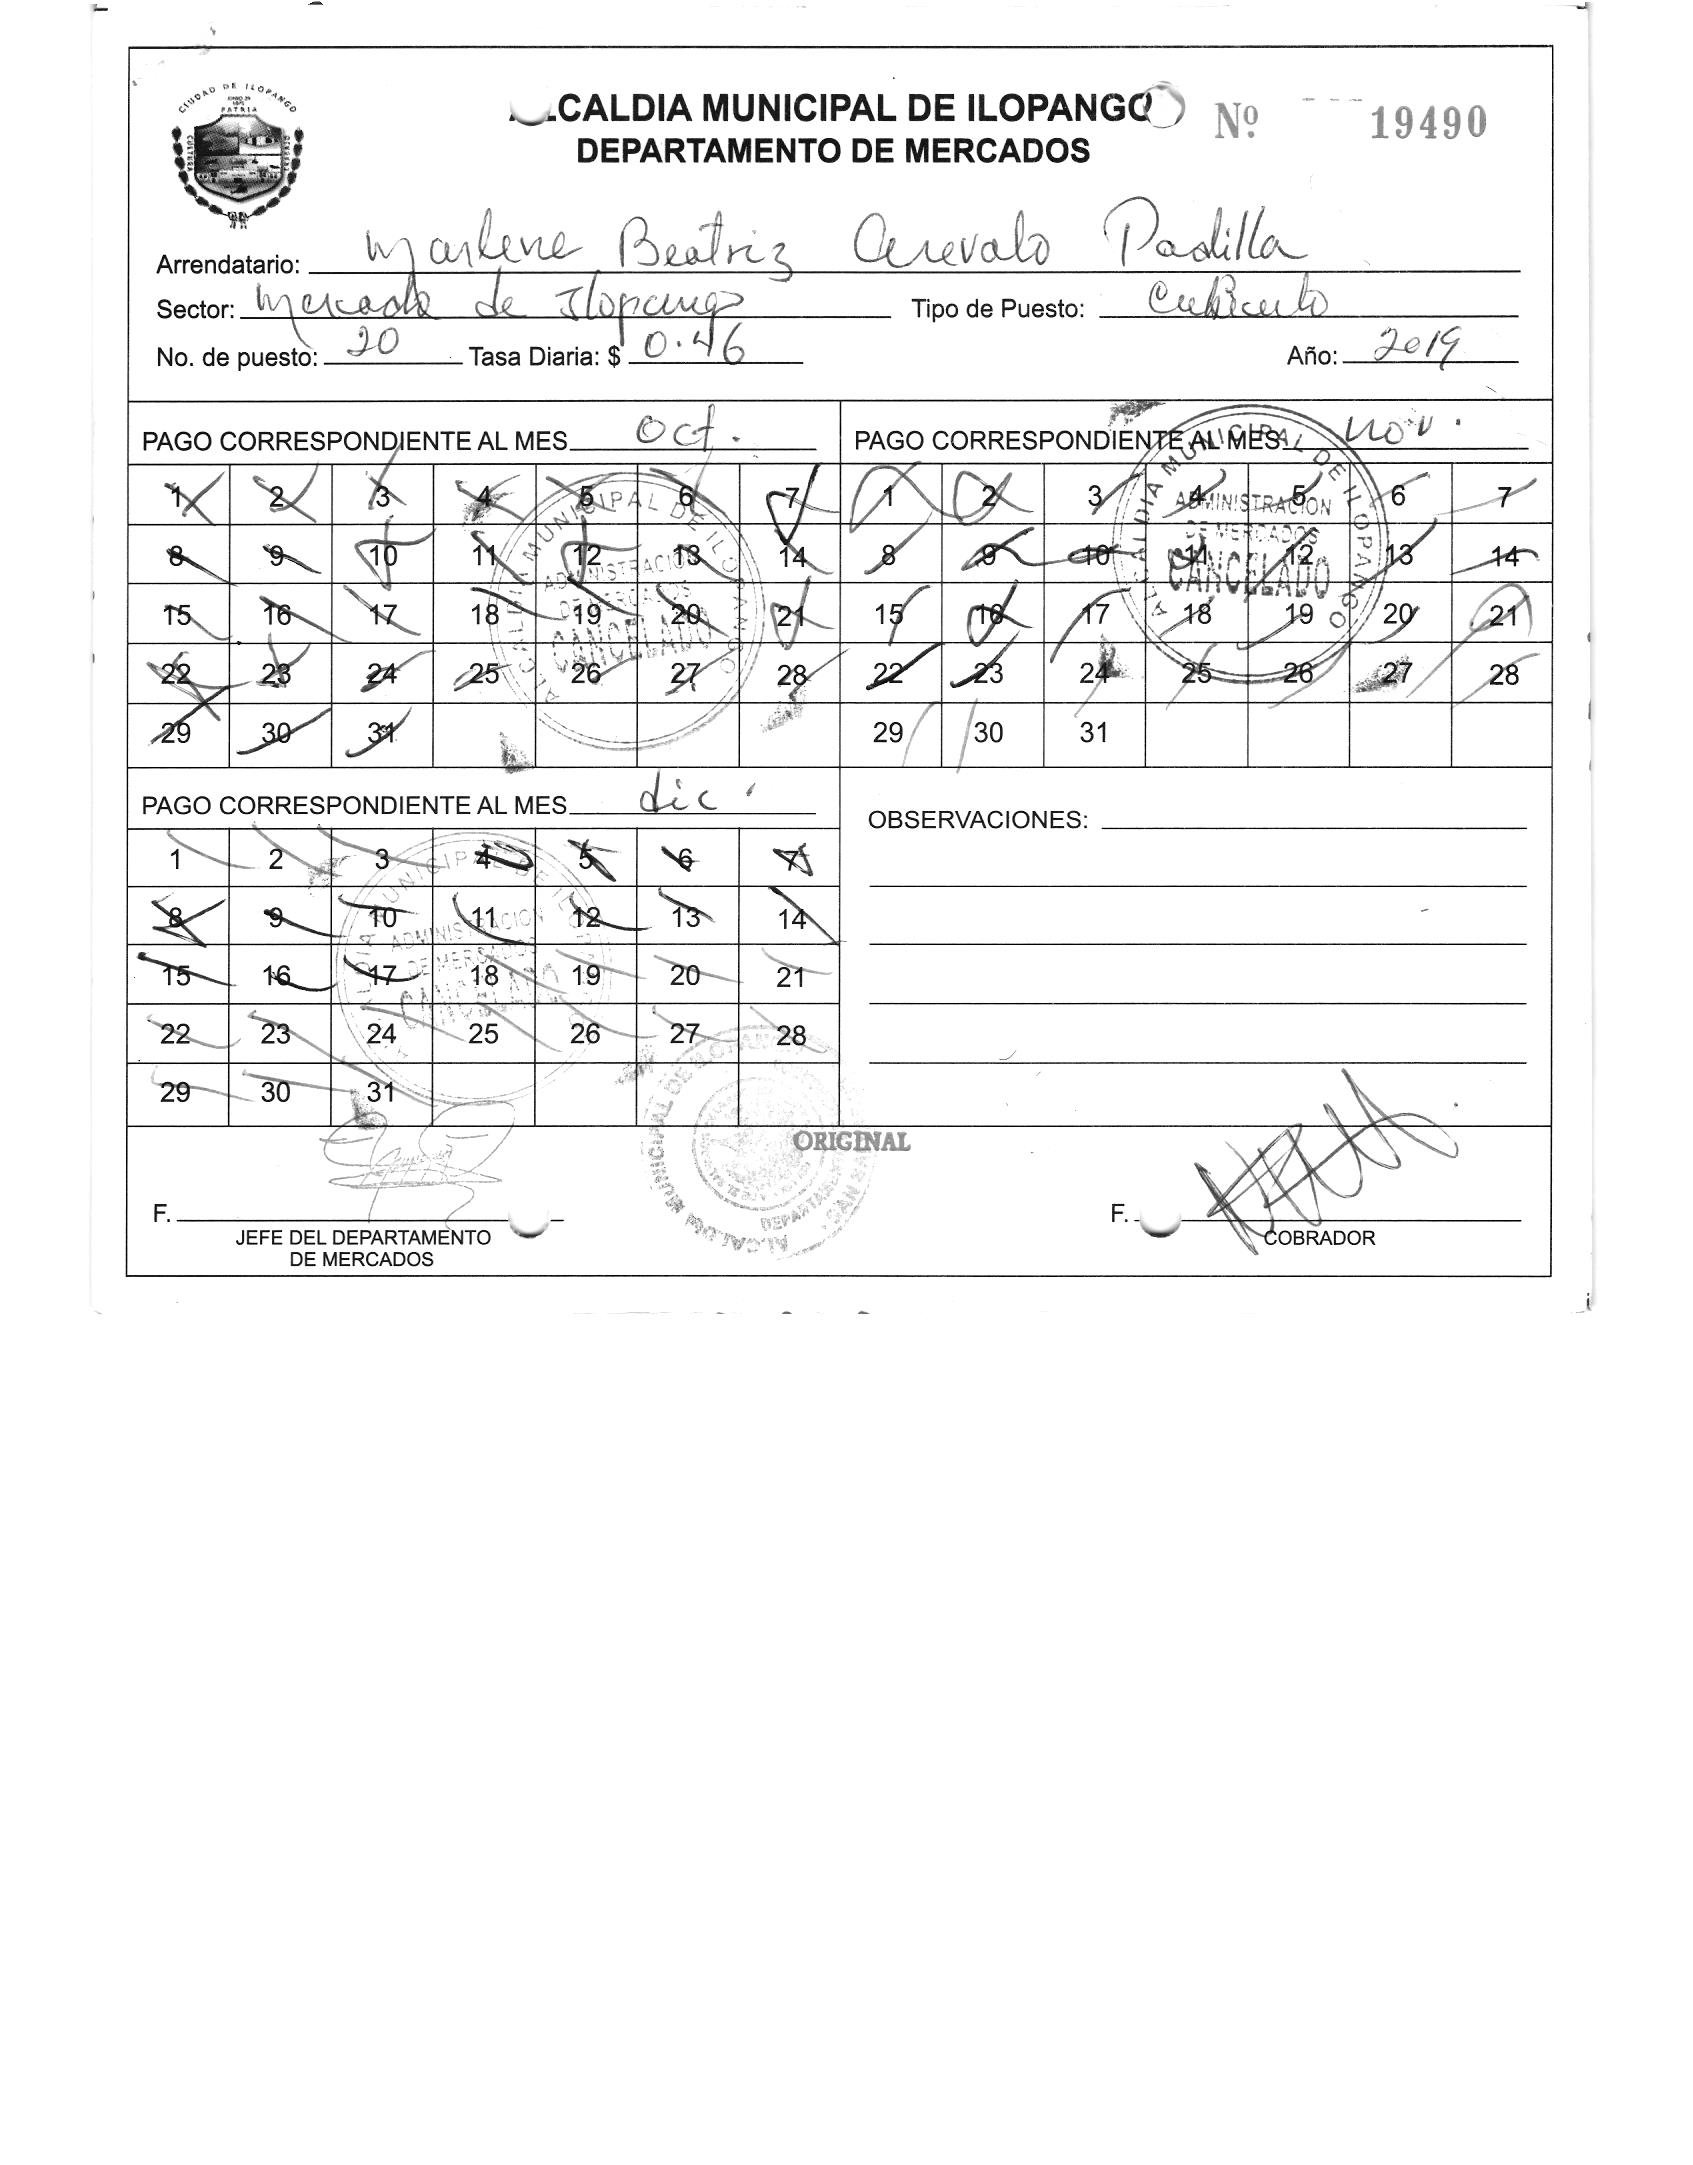 CIUDAD DE ILOPANGO
PATRIA
CULTURA
ALCALDIA MUNICIPAL DE ILOPANGO
DEPARTAMENTO DE MERCADOS
Nº 19490
Arrendatario: Marlene Beatriz Arevalo Padilla
Sector: Mercado de Ilopango Tipo de Puesto: Cubiculo
No. de puesto: 20 Tasa Diaria: $ 0.46 Año: 2019
PAGO CORRESPONDIENTE AL MES oct.
1 2 3 4 5 6 7
8 9 10 11 12 13 14
15 16 17 18 19 20 21
22 23 24 25 26 27 28
29 30 31
ALCALDIA MUNICIPAL DE ILOPANGO
ADMINISTRACION
DE MERCADOS
CANCELADO
PAGO CORRESPONDIENTE AL MES nov.
1 2 3 4 5 6 7
8 9 10 11 12 13 14
15 16 17 18 19 20 21
22 23 24 25 26 27 28
29 30 31
ALCALDIA MUNICIPAL DE ILOPANGO
ADMINISTRACION
DE MERCADOS
CANCELADO
PAGO CORRESPONDIENTE AL MES dic.
1 2 3 4 5 6 7
8 9 10 11 12 13 14
15 16 17 18 19 20 21
22 23 24 25 26 27 28
29 30 31
ALCALDIA MUNICIPAL DE ILOPANGO
ADMINISTRACION
DE MERCADOS
CANCELADO
OBSERVACIONES:
ALCALDIA MUNICIPAL DE ILOPANGO
ORIGINAL
F.
JEFE DEL DEPARTAMENTO
DE MERCADOS
F.
COBRADOR